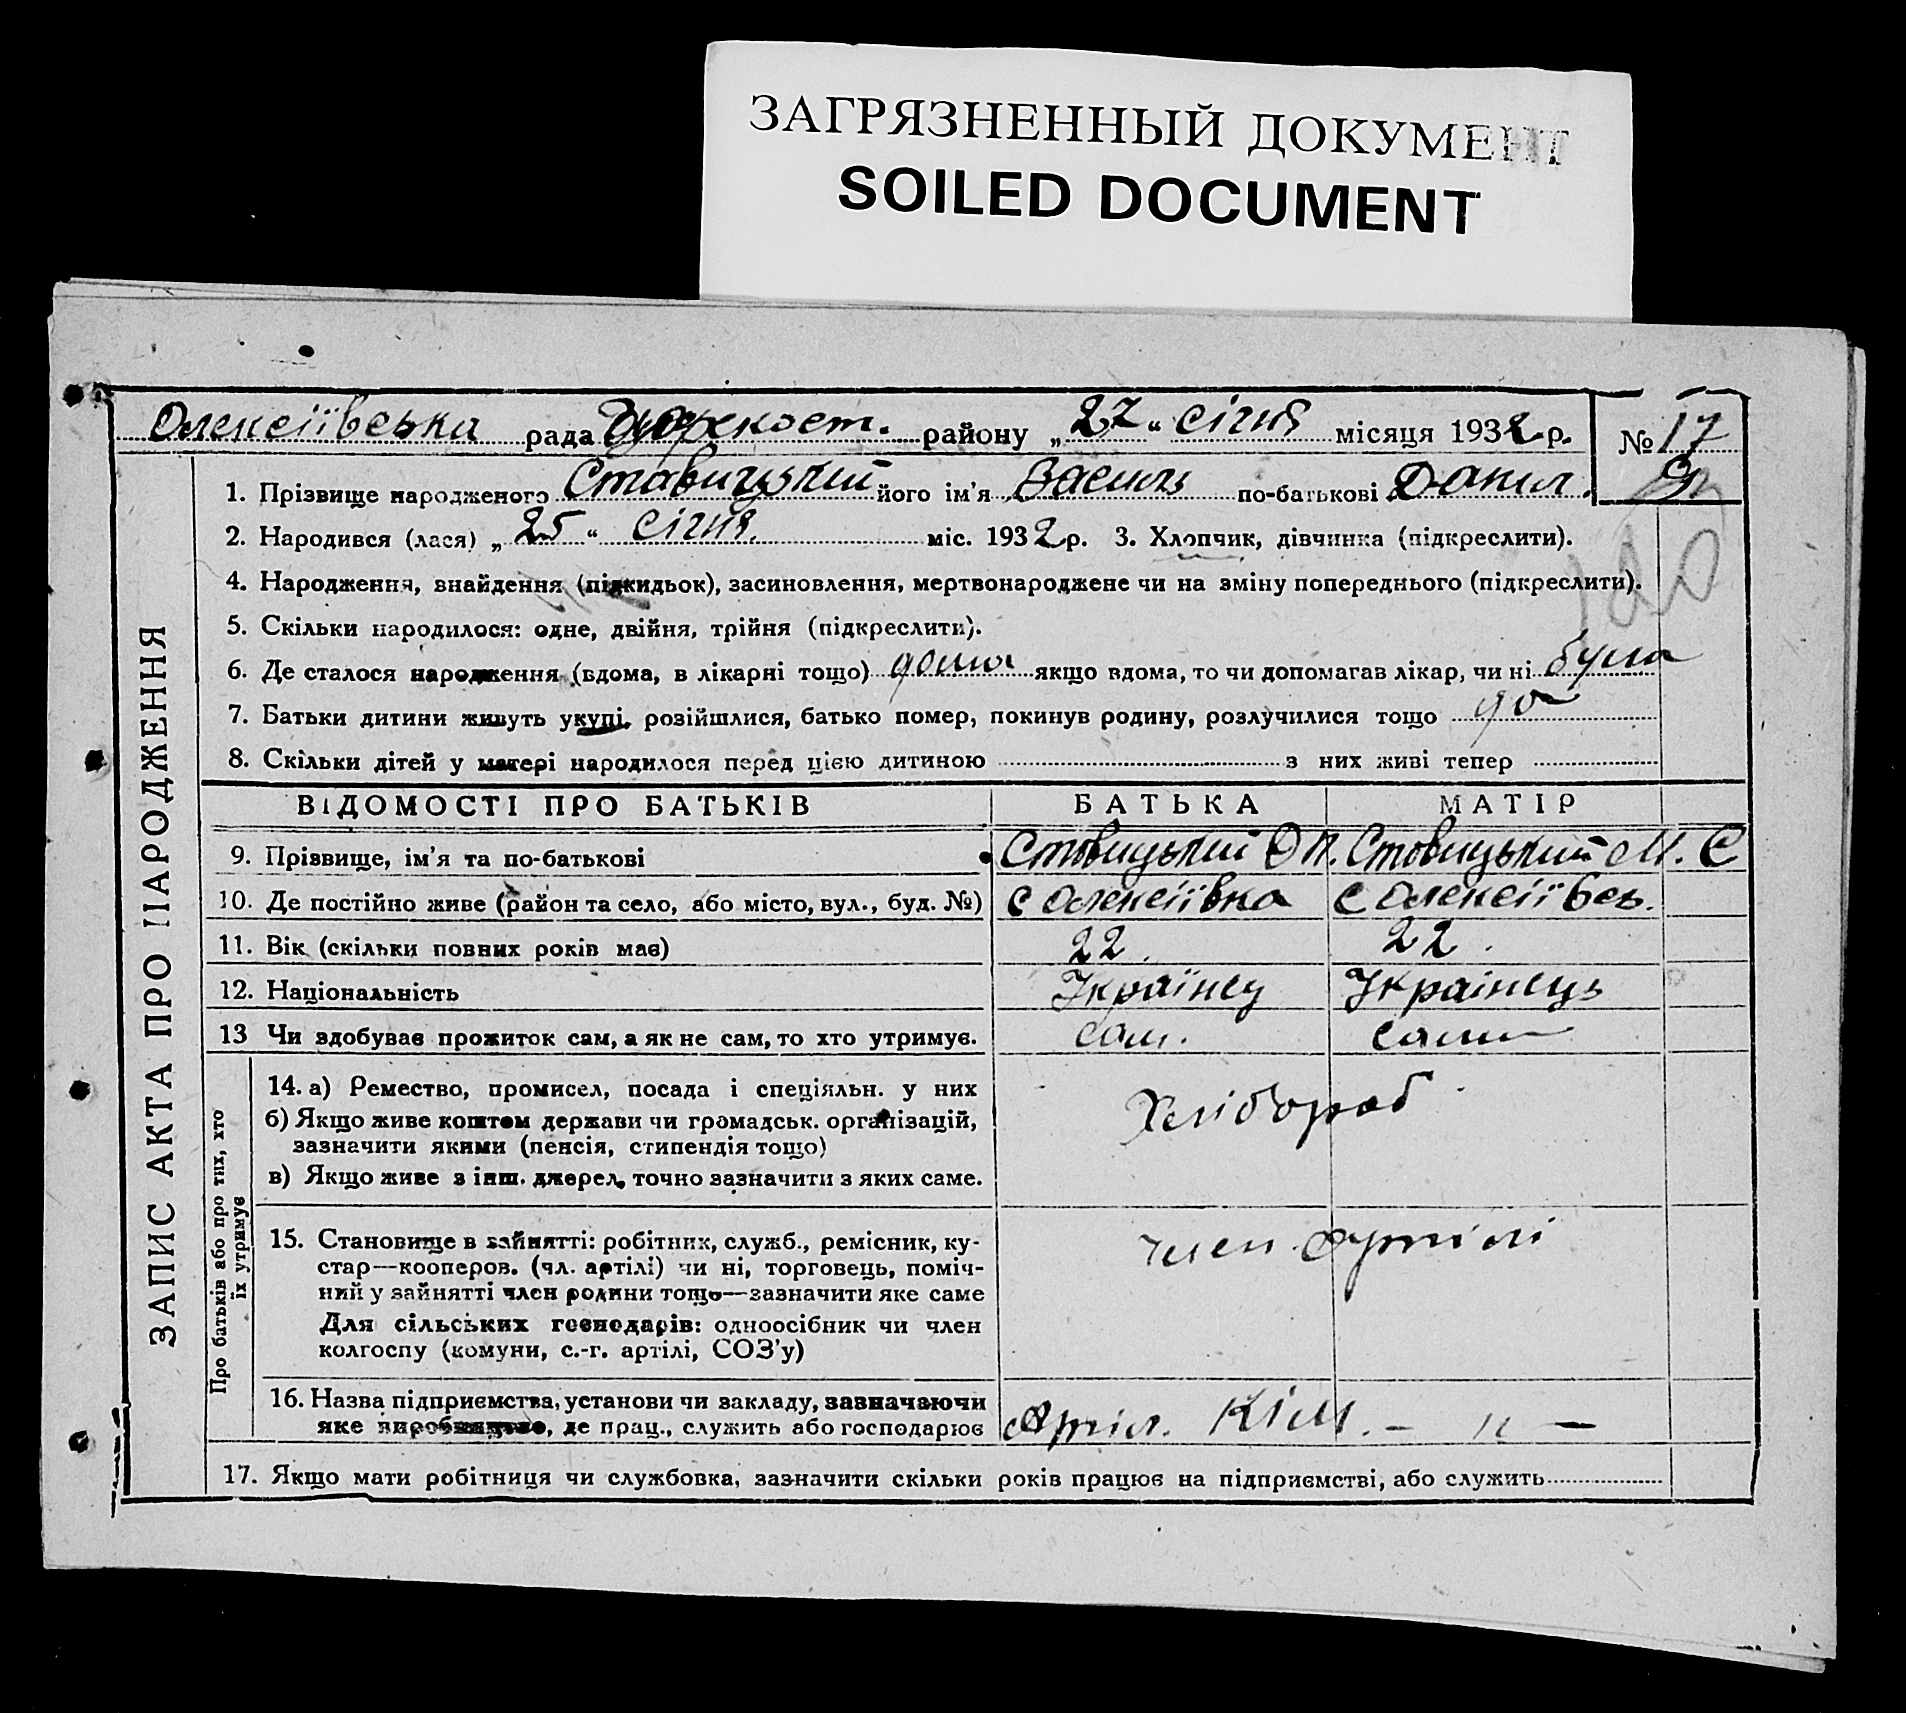 ЗАГРЯЗНЕННЫЙ ДОКУМЕНТ
SOILED DOCUMENT
Олексіївська рада району „27“ січня місяця 1932 р. № 17
1. Прізвище народженого Ставицький його ім'я Василь по-батькові Данил.
2. Народився (лася) „25“ січня. міс. 1932 р. 3. Хлопчик, дівчинка (підкреслити).
4. Народження, внайдення (підкидьок), засиновлення, мертвонароджене чи на зміну попереднього (підкреслити).
5. Скільки народилося: одне, двійня, трійня (підкреслити).
6. Де сталося народження (вдома, в лікарні тощо) дома якщо вдома, то чи допомагав лікар, чи ні була
7. Батьки дитини живуть укупі, розійшлися, батько помер, покинув родину, розлучилися тощо до
8. Скільки дітей у матері народилося перед цією дитиною з них живі тепер
ВІДОМОСТІ ПРО БАТЬКІВ БАТЬКА МАТІР
9. Прізвище, ім'я та по-батькові Ставицький Д П. Ставицький М. С
10. Де постійно живе (район та село, або місто, вул., буд. №) с Олексіївка с Олексіївсь.
11. Вік (скільки повних років має) 22. 22.
12. Національність Українец Українець
13 Чи здобуває прожиток сам, а як не сам, то хто утримує. сам. сами
14. а) Ремество, промисел, посада і спеціяльн. у них Хлібороб
б) Якщо живе коштом держави чи громадськ. організацій,
зазначити якими (пенсія, стипендія тощо)
в) Якщо живе з інш. джерел, точно зазначити з яких саме.
15. Становище в зайнятті: робітник, служб., ремісник, ку- член артілі
стар—кооперов. (чл. артілі) чи ні, торговець, поміч-
ний у зайнятті член родини тощо—зазначити яке саме
Для сільських господарів: одноосібник чи член
колгоспу (комуни, с.-г. артілі, СОЗ'у)
16. Назва підприємства, установи чи закладу, зазначаючи
яке виробництво, де прац., служить або господарює Артіл. КІМ. – „ –
17. Якщо мати робітниця чи службовка, зазначити скільки років працює на підприємстві, або служить
ЗАПИС АКТА ПРО НАРОДЖЕННЯ
Про батьків або про тих, хто
їх утримує